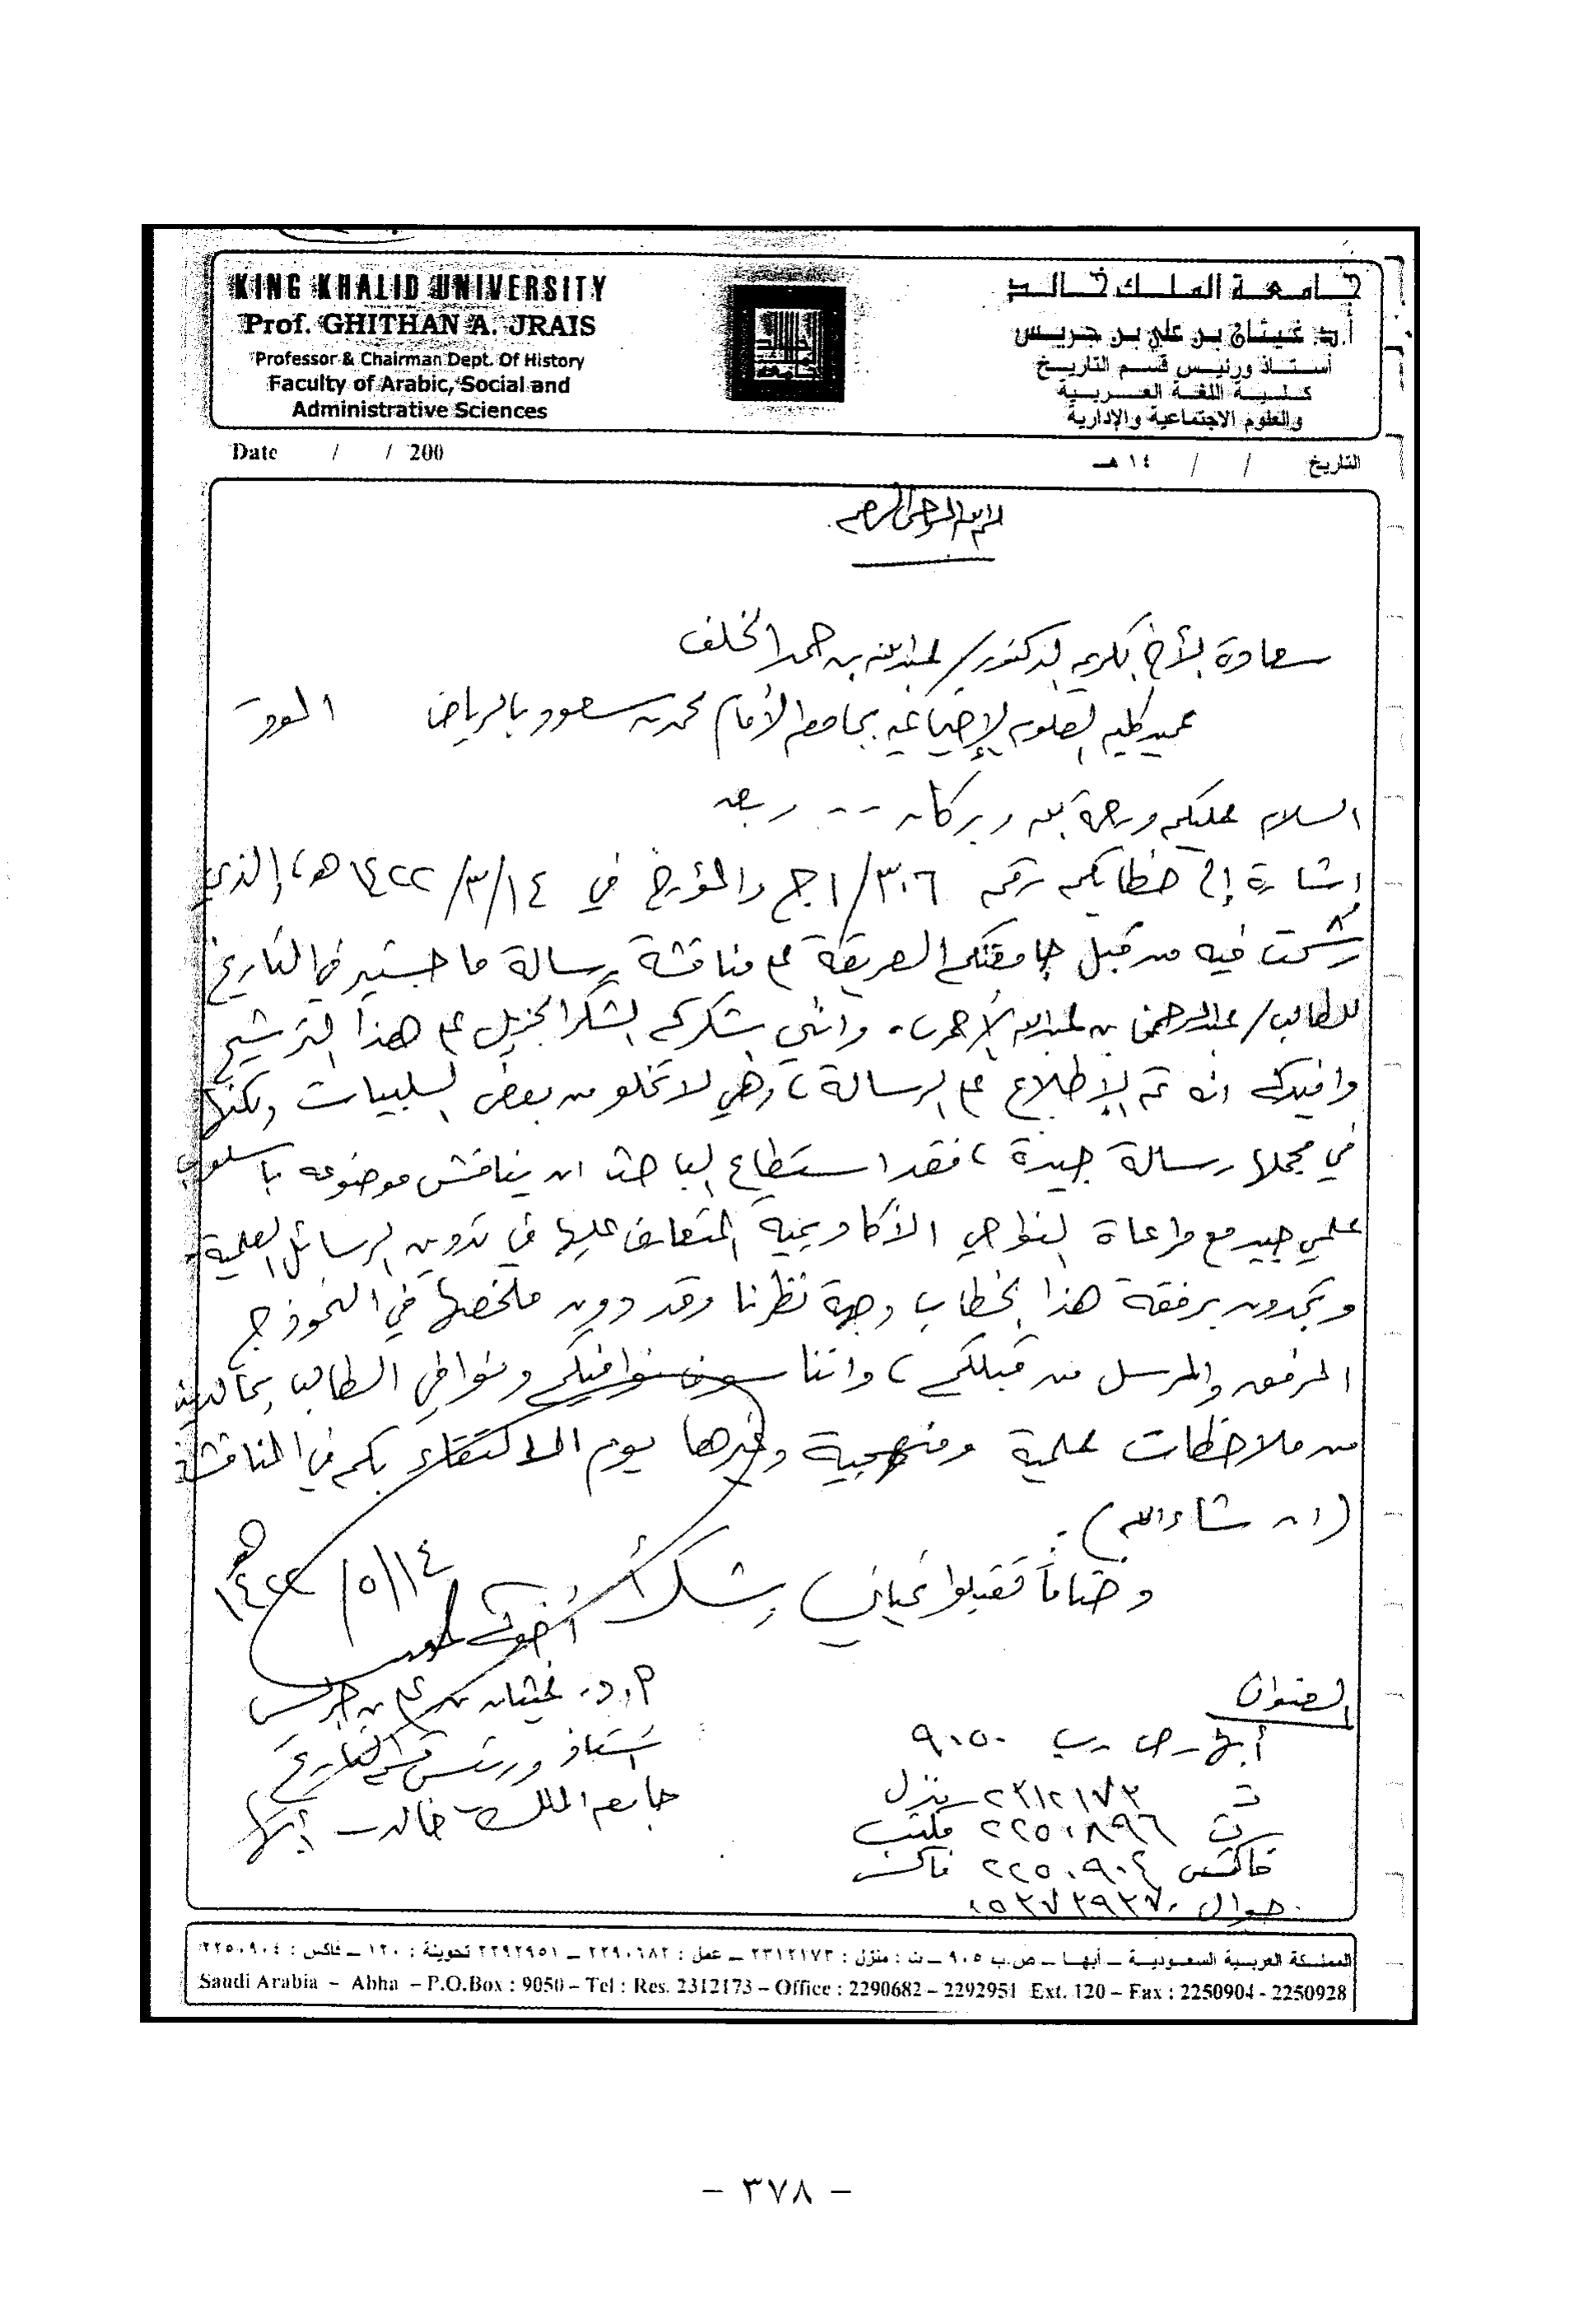 KING KHALID UNIVERSITY
Prof. GHITHAN A. JRAIS
Professor & Chairman Dept. Of History
Faculty of Arabic, Social and
Administrative Sciences
جامعة الملك خالد
أ.د. غيثان بن علي بن جريس
أستاذ ورئيس قسم التاريخ
كلية اللغة العربية
والعلوم الاجتماعية والإدارية
Date / / 200
التاريخ / / ١٤هـ
بسم الله الرحمن الرحيم
سعادة الأخ الكريم الدكتور/ عبدالله بن حمد الخلف
عميد كلية العلوم الإجتماعية بجامعة الأمام محمد بن سعود بالرياض الموقر
السلام عليكم ورحمة الله وبركاته -- وبعد
اشارة إلى خطابكم رقم ٣٠٦/١ج والمؤرخ في ١٤/٣/١٤٢٢هـ، والذي
رشحت فيه من قبل جامعتكم العريقة على مناقشة رسالة ماجستير في التاريخ
للطالب/ عبدالرحمن بن عبدالله الأحمري. وانني شكركم الشكر الجزيل على هذا الترشيح
وافيدكم انه تم الإطلاع على الرسالة، وهي لا تخلو من بعض السلبيات ولكنها
في مجملها رسالة جيدة، فقد استطاع الباحث ان يناقش موضوعه باسلوب
علمي جيد مع مراعاة النواحي الأكاديمية المتعارف عليها في تدوين الرسائل العلمية.
وتجدون برفقة هذا الخطاب وجهة نظرنا وقد دون ملخصها في النموذج
المرفق والمرسل من قبلكم، واننا سوف نوافيكم ونوافي الطالب بما لدينا
من ملاحظات علمية ومنهجية وغيرها يوم الالتقاء بكم في المناقشة
(ان شاء الله).
وختاماً تقبلوا تحياتي وشكراً
١٤/٥/١٤٢٢هـ
أخوكم
أ.د. غيثان بن علي بن جريس
استاذ ورئيس قسم التاريخ
جامعة الملك خالد - أبها
العنوان
أبها - ص.ب ٩٠٥٠
ت ٢٣١٢١٧٣ منزل
ت ٢٢٥٠٨٩٦ مكتب
فاكس ٢٢٥٠٩٠٤ فاكس
جوال ٠٥٣٧٣٩٣٧٠
المملكة العربية السعودية – أبها – ص.ب ٩٠٥ – ت : منزل : ٢٣١٢١٧٣ – عمل : ٢٢٩٠٦٨٢ – ٢٢٩٢٩٥١ تحويلة : ١٢٠ – فاكس : ٢٢٥٠٩٠٤
Saudi Arabia – Abha – P.O.Box : 9050 – Tel : Res. 2312173 – Office : 2290682 – 2292951 Ext. 120 – Fax : 2250904 - 2250928
- ٣٧٨ -